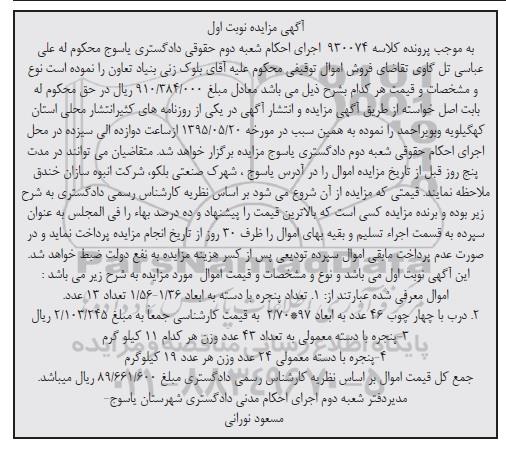 آگهی مزایده نوبت اول
به موجب پرونده کلاسه ۹۳۰۰۷۴ اجرای احکام شعبه دوم حقوقی دادگستری یاسوج محکوم له علی
عباسی تل گاوی تقاضای فروش اموال توقیفی محکوم علیه آقای بلوک زنی بنیاد تعاون را نموده است نوع
و مشخصات و قیمت هر کدام بشرح ذیل می باشد معادل مبلغ ۹۱۰/۳۸۴/۰۰۰ ریال در حق محکوم له
بابت اصل خواسته از طریق آگهی مزایده و انتشار آگهی در یکی از روزنامه های کثیرانتشار محلی استان
کهگیلویه وبویراحمد را نموده به همین سبب در مورخه ۱۳۹۵/۰۵/۲۰ ازساعت دوازده الی سیزده در محل
اجرای احکام حقوقی شعبه دوم دادگستری یاسوج مزایده برگزار خواهد شد. متقاضیان می توانند در مدت
پنج روز قبل از تاریخ مزایده اموال را در آدرس یاسوج ، شهرک صنعتی بلکو، شرکت انبوه سازان خندق
ملاحظه نمایند. قیمتی که مزایده از آن شروع می شود بر اساس نظریه کارشناس رسمی دادگستری به شرح
زیر بوده و برنده مزایده کسی است که بالاترین قیمت را پیشنهاد و ده درصد بهاء را فی المجلس به عنوان
سپرده به قسمت اجراء تسلیم و بقیه بهای اموال را ظرف ۳۰ روز از تاریخ انجام مزایده پرداخت نماید و در
صورت عدم پرداخت مابقی اموال سپرده تودیعی پس از کسر هزینه مزایده به نفع دولت ضبط خواهد شد.
این آگهی نوبت اول می باشد و نوع و مشخصات و قیمت اموال مورد مزایده به شرح زیر می باشد :
اموال معرفی شده عبارتند از: ۱. تعداد پنجره با دسته به ابعاد ۱/۳۶-۱/۵۶ تعداد ۱۳ عدد.
۲. درب با چهار چوب ۴۶ عدد به ابعاد ۹۷*۲/۷۰ به قیمت کارشناسی جمعاً به مبلغ ۲/۱۰۳/۲۴۵ ریال
۳-پنجره با دسته معمولی به تعداد ۴۳ عدد وزن هر کدام ۱۱ کیلو گرم
۴-پنجره با دسته معمولی ۲۴ عدد وزن هر عدد ۱۹ کیلوگرم
جمع کل قیمت اموال بر اساس نظریه کارشناس رسمی دادگستری مبلغ ۸۹/۶۶۱/۶۰۰ ریال میباشد.
مدیردفتر شعبه دوم اجرای احکام مدنی دادگستری شهرستان یاسوج-
مسعود نورانی
ParsNamadData
پایگاه اطلاع رسانی مناقصه و مزایده
۰۲۱-۸۸۳۴۹۶۷۰-۵